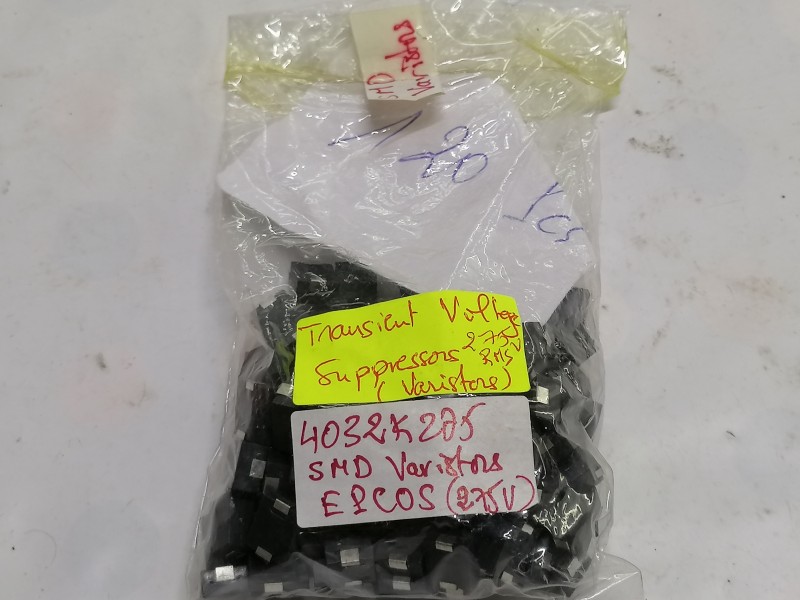 SMD
Varistors
120
Pcs
Transient Voltage
Suppressors 275V
RMS
(Varistors)
4032K275
SMD Varistors
EPCOS (275V)